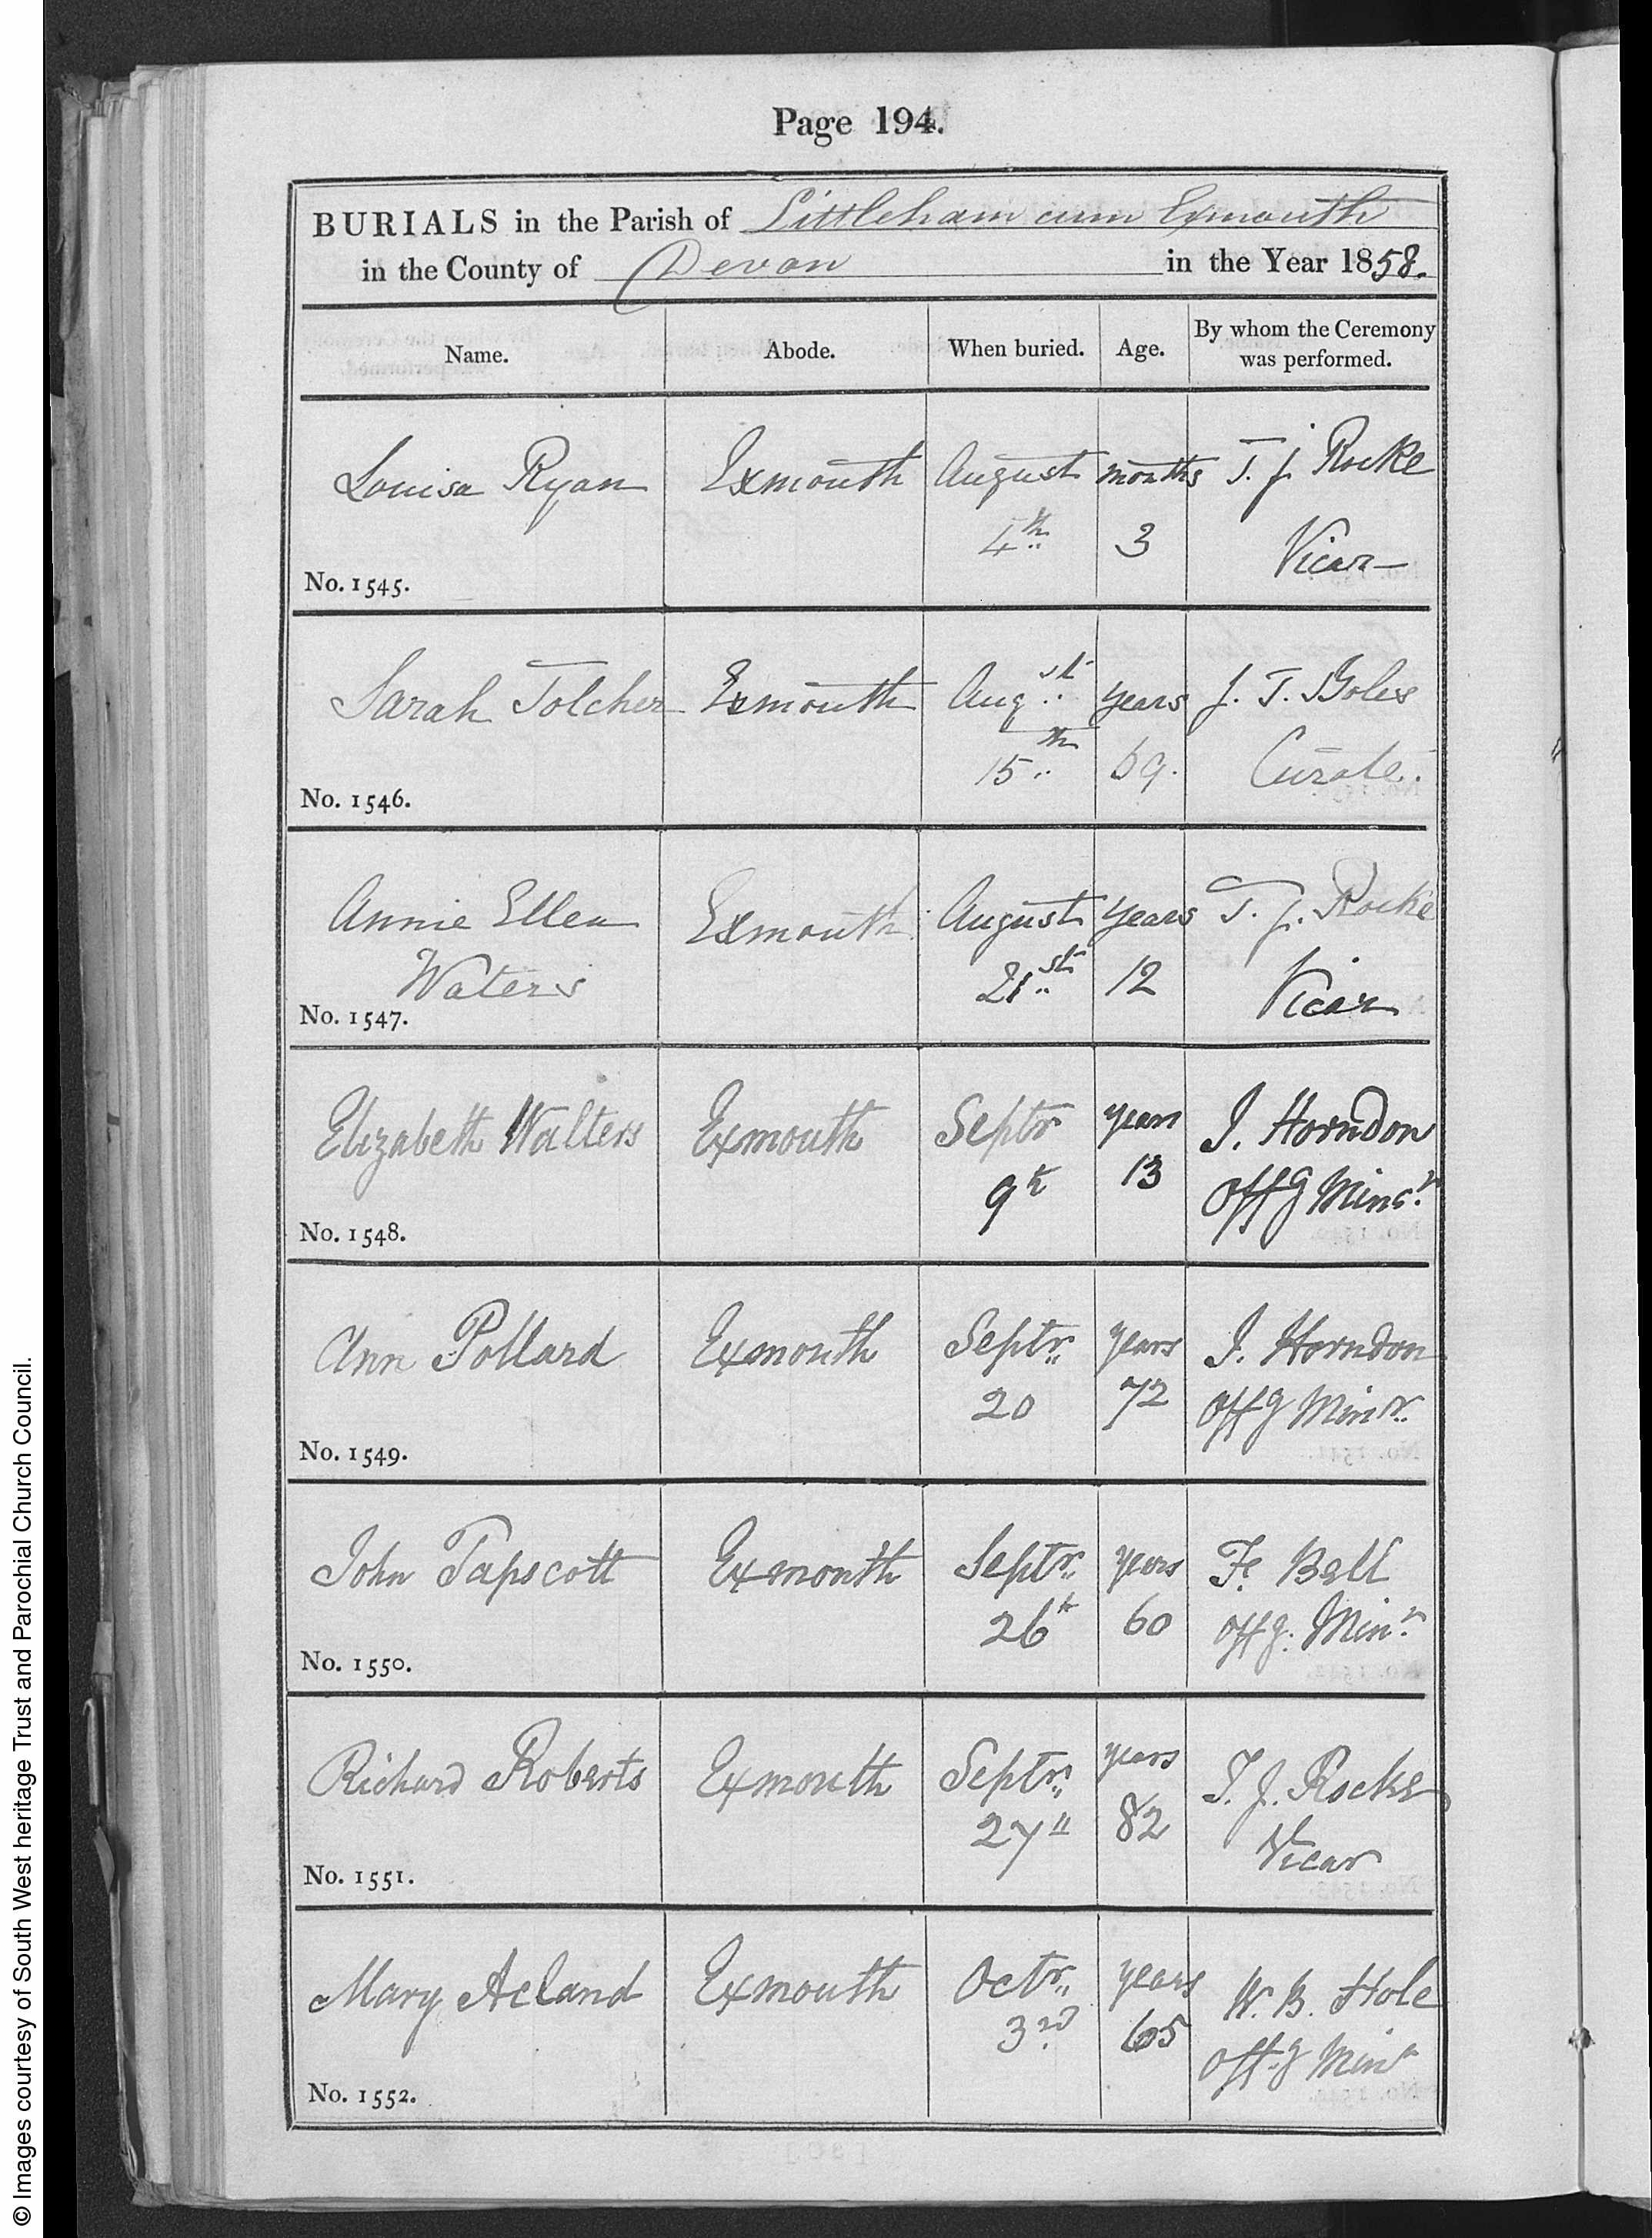 Page 194.
BURIALS in the Parish of Littleham cum Exmouth
in the County of Devon in the Year 1858.
Name. Abode. When buried. Age. By whom the Ceremony was performed.
Louisa Ryan Exmouth August months T. J. Rocke
4th 3 Vicar
No. 1545.
Sarah Tolcher Exmouth Augst years J. T. Boles
15th 69. Curate.
No. 1546.
Annie Ellen Exmouth August years T. J. Rocke
Waters 21st 12 Vicar
No. 1547.
Elizabeth Walters Exmouth Septr years J. Horndon
9th 13 Offg Minr
No. 1548.
Ann Pollard Exmouth Septr years J. Horndon
20 72 Offg Minr
No. 1549.
John Tapscott Exmouth Septr years F. Bell
26th 60 Offg. Minr
No. 1550.
Richard Roberts Exmouth Septr years T. J. Rocke
27" 82 Vicar
No. 1551.
Mary Acland Exmouth Octr years W. B. Hole
3rd 65 Offg Minr
No. 1552.
© Images courtesy of South West heritage Trust and Parochial Church Council.